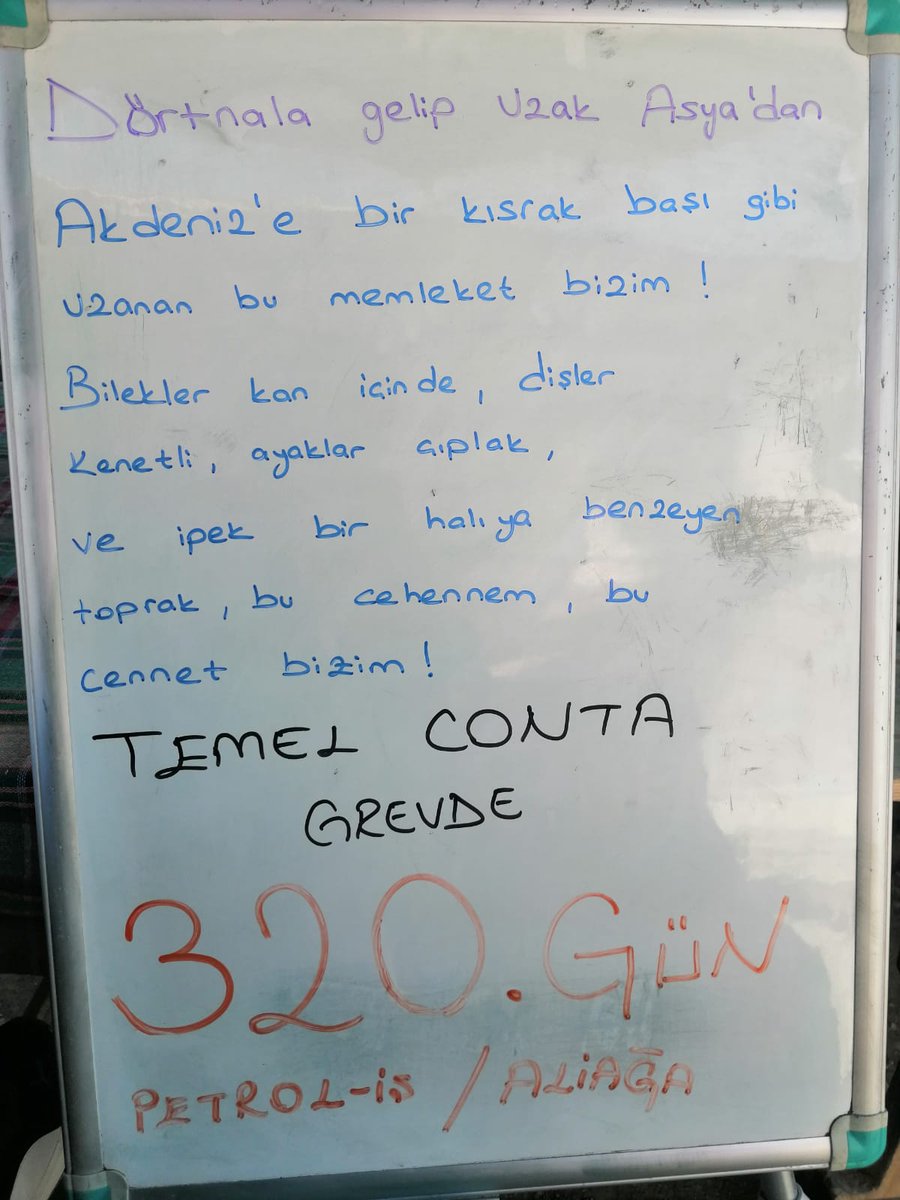 Dörtnala gelip uzak Asya'dan
Akdeniz'e bir kısrak başı gibi
uzanan bu memleket bizim !
Bilekler kan içinde , dişler
kenetli , ayaklar çıplak ,
ve ipek bir halıya benzeyen
toprak , bu cehennem , bu
cennet bizim !
TEMEL CONTA
GREVDE
320. GÜN
PETROL-İS / ALİAĞA